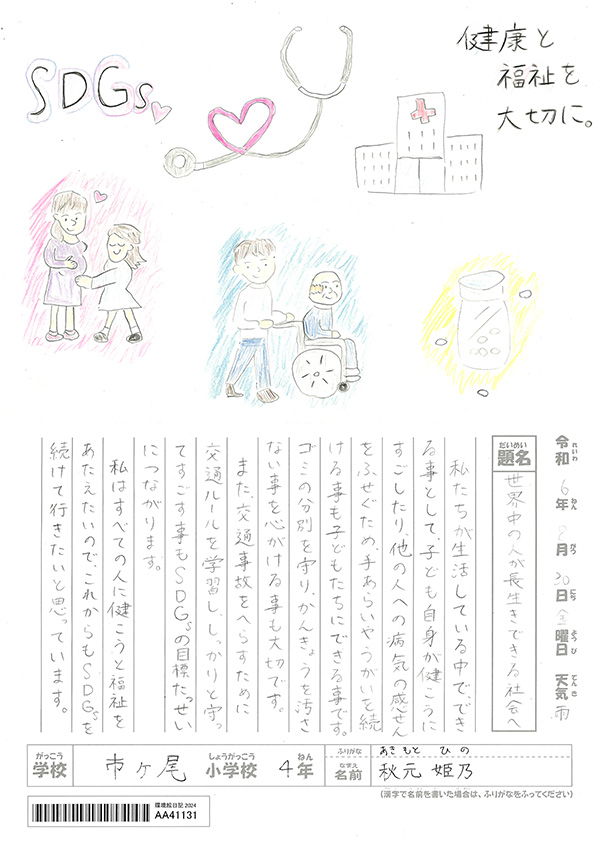 SDGs
健康と
福祉を
大切に。
令和6年8月30日金曜日 天気 雨
れいわ ねん がつ にち ようび てんき
だいめい
題名 世界中の人が長生きできる社会へ
私たちが生活している中で、でき
る事として、子ども自身が健こうに
すごしたり、他の人への病気の感せん
をふせぐため、手あらいやうがいを続
ける事も子どもたちにできる事です。
ゴミの分別を守り、かんきょうを汚さ
ない事を心がける事も大切です。
また、交通事故をへらすために
交通ルールを学習し、しっかりと守っ
てすごす事もSDGsの目標たっせい
につながります。
私はすべての人に健こうと福祉を
あたえたいので、これからもSDGsを
続けて行きたいと思っています。
がっこう しょうがっこう ねん ふりがな あきもと ひの
学校 市ヶ尾 小学校 4年 なまえ 名前 秋元 姫乃
(漢字で名前を書いた場合は、ふりがなをふってください)
環境絵日記 2024
AA41131